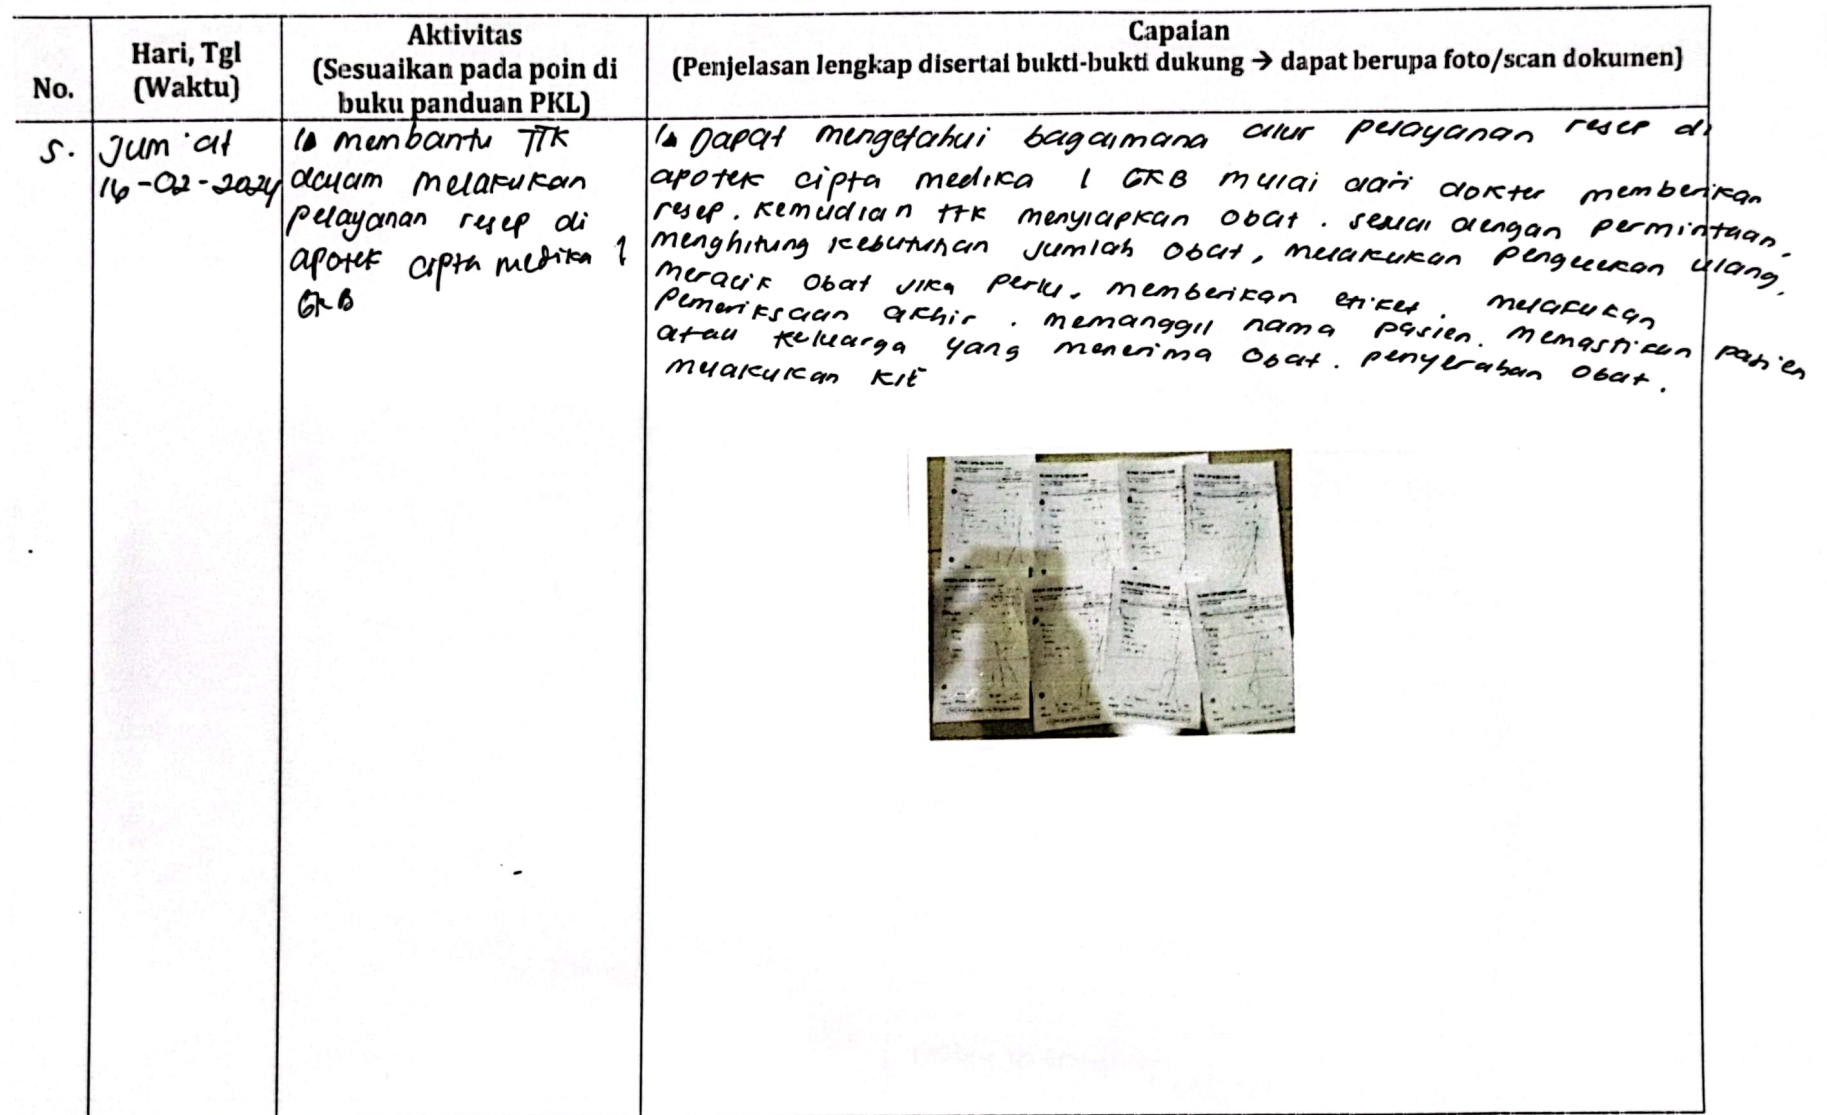 No.
Hari, Tgl
(Waktu)
Aktivitas
(Sesuaikan pada poin di
buku panduan PKL)
Capaian
(Penjelasan lengkap disertai bukti-bukti dukung → dapat berupa foto/scan dokumen)
5.
Jum'at
16-02-2024
1. membantu TTK
dalam melakukan
pelayanan resep di
apotek cipta medika 1
GKB
1. Dapat mengetahui bagaimana alur pelayanan resep di
apotek cipta medika 1 GKB mulai dari dokter memberikan
resep. Kemudian ttk menyiapkan obat. sesuai dengan permintaan,
menghitung kebutuhan jumlah obat, melakukan pengecekan ulang,
meracik obat jika perlu, memberikan etiket, melakukan
pemeriksaan akhir. memanggil nama pasien. memastikan pasien
atau keluarga yang menerima obat. penyerahan obat.
melakukan KIE